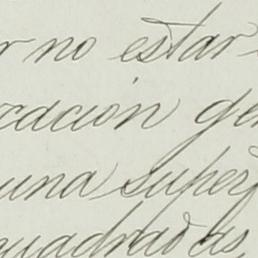 r no estar
zación ge
una super
cuadradas,